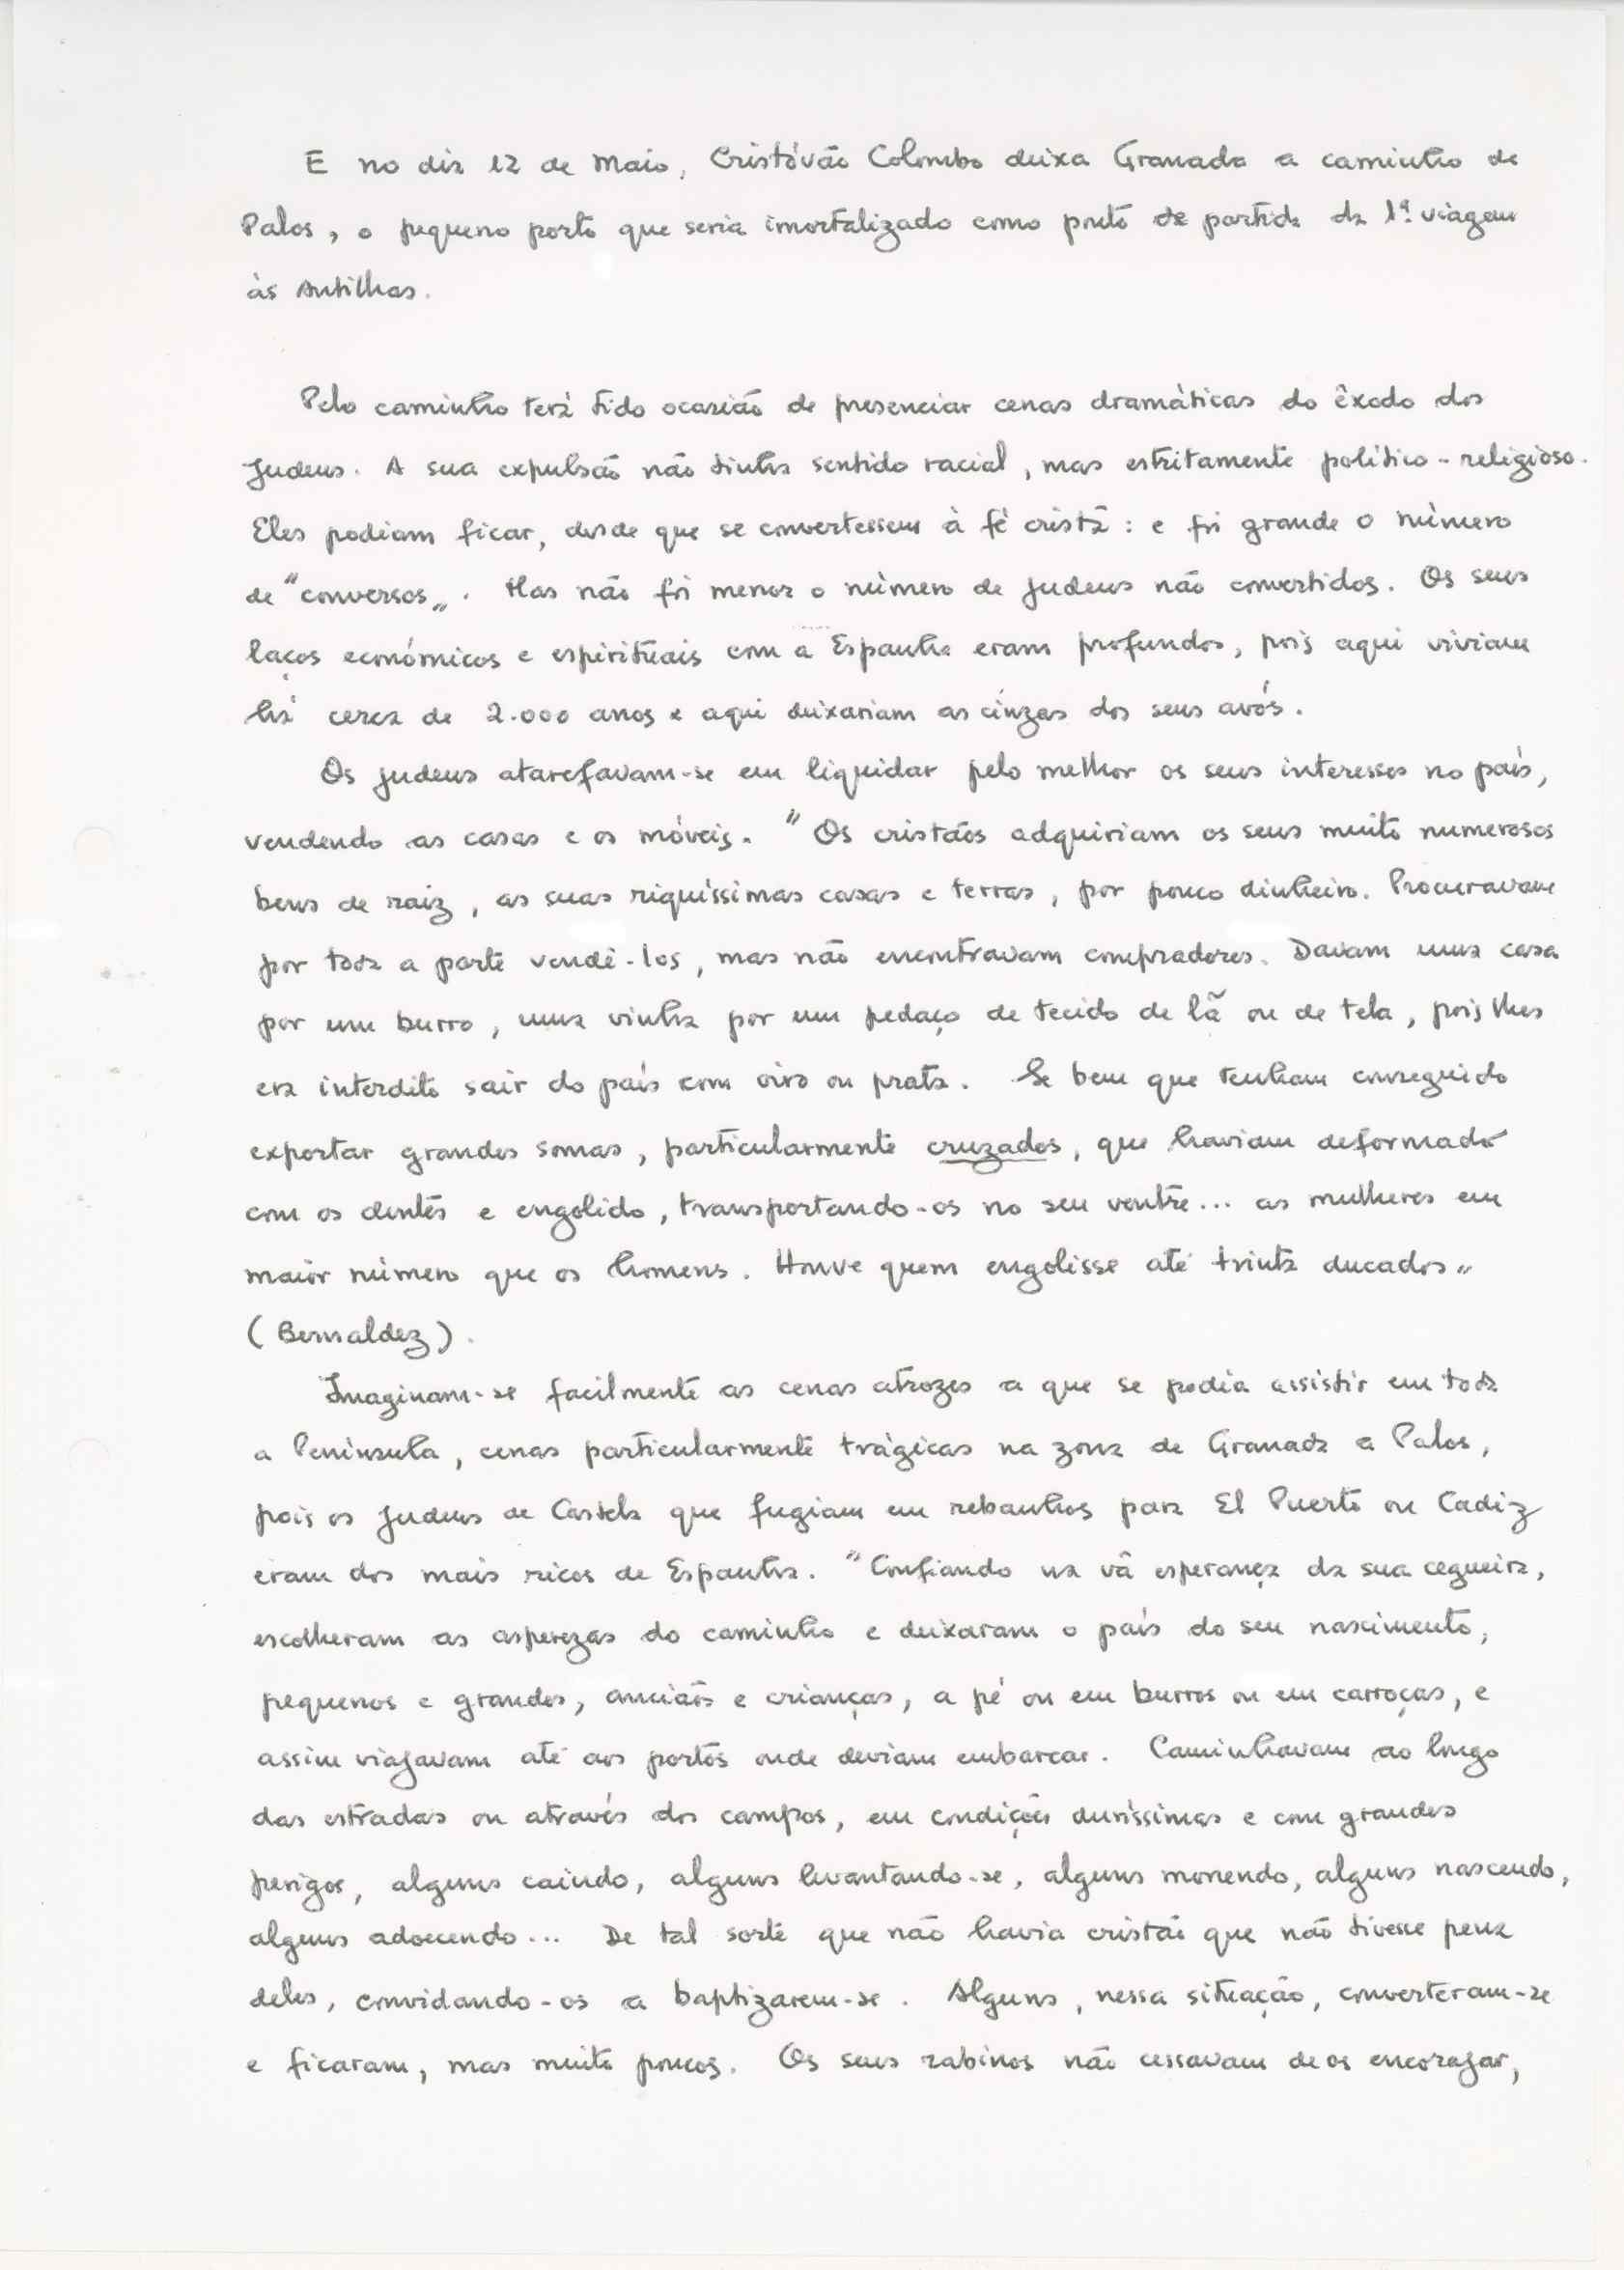 E no dia 12 de Maio, Cristóvão Colombo deixa Granada a caminho de
Palos, o pequeno porto que seria imortalizado como ponto de partida da 1ª viagem
às Antilhas.
Pelo caminho terá tido ocasião de presenciar cenas dramáticas do êxodo dos
Judeus. A sua expulsão não tinha sentido racial, mas estritamente político-religioso.
Eles podiam ficar, desde que se convertessem à fé cristã: e foi grande o número
de "conversos". Mas não foi menor o número de Judeus não convertidos. Os seus
laços económicos e espirituais com a Espanha eram profundos, pois aqui viviam
há cerca de 2.000 anos e aqui deixariam as cinzas dos seus avós.
Os judeus atarefavam-se em liquidar pelo melhor os seus interesses no país,
vendendo as casas e os móveis. "Os cristãos adquiriam os seus muito numerosos
bens de raiz, as suas riquíssimas casas e terras, por pouco dinheiro. Procuravam
por toda a parte vendê-los, mas não encontravam compradores. Davam uma casa
por um burro, uma vinha por um pedaço de tecido de lã ou de tela, pois lhes
era interdito sair do país com oiro ou prata. Se bem que tenham conseguido
exportar grandes somas, particularmente cruzados, que haviam deformado
com os dentes e engolido, transportando-os no seu ventre... as mulheres em
maior número que os homens. Houve quem engolisse até trinta ducados"
(Bernaldez).
Imaginam-se facilmente as cenas atrozes a que se podia assistir em toda
a Península, cenas particularmente trágicas na zona de Granada a Palos,
pois os Judeus de Castela que fugiam em rebanhos para El Puerto ou Cadiz
eram dos mais ricos de Espanha. "Confiando na vã esperança da sua cegueira,
escolheram as asperezas do caminho e deixaram o país do seu nascimento,
pequenos e grandes, anciãos e crianças, a pé ou em burros ou em carroças, e
assim viajavam até aos portos onde deviam embarcar. Caminhavam ao longo
das estradas ou através dos campos, em condições duríssimas e com grandes
perigos, alguns caindo, alguns levantando-se, alguns morrendo, alguns nascendo,
alguns adoecendo... De tal sorte que não havia cristão que não tivesse pena
deles, convidando-os a baptizarem-se. Alguns, nessa situação, converteram-se
e ficaram, mas muito poucos. Os seus rabinos não cessavam de os encorajar,